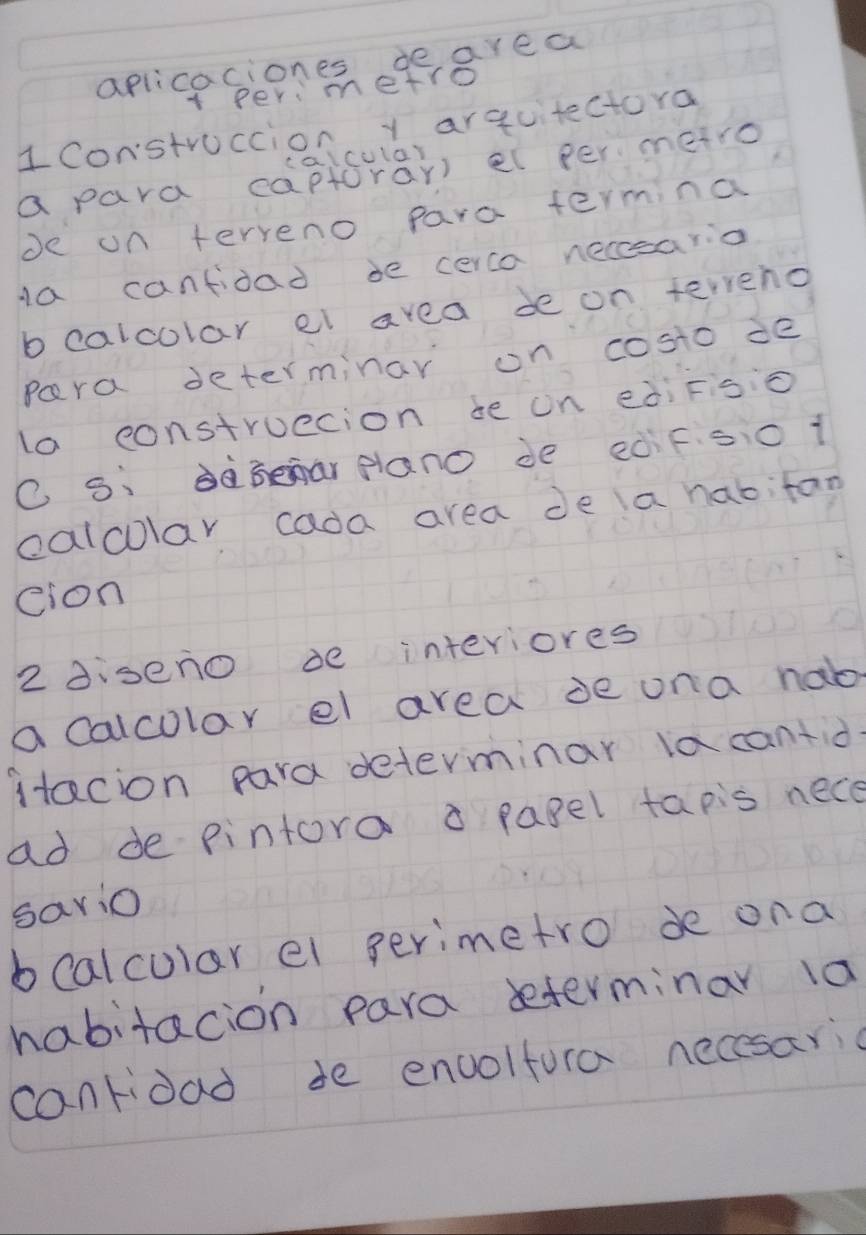 aplicaciones de area
y perimetro
1 Construccion y arquitectora
calcular
a para capturar) el perimetro
de un terreno para termina
la cantidad de cerca neccesario
b calcolar el area de on terreno
para determinar on costo de
la construccion de un edifisio
c si diseñar plano de edifisio y
calcular cada area de la habitan
cion
2 diseño de interiores
a calcolar el area de una hab
itacion para determinar la cantid-
ad de pintora o papel tapis nece
sario
b calcular el perimetro de ona
habitación para determinar la
cantidad de envoltura neccsario